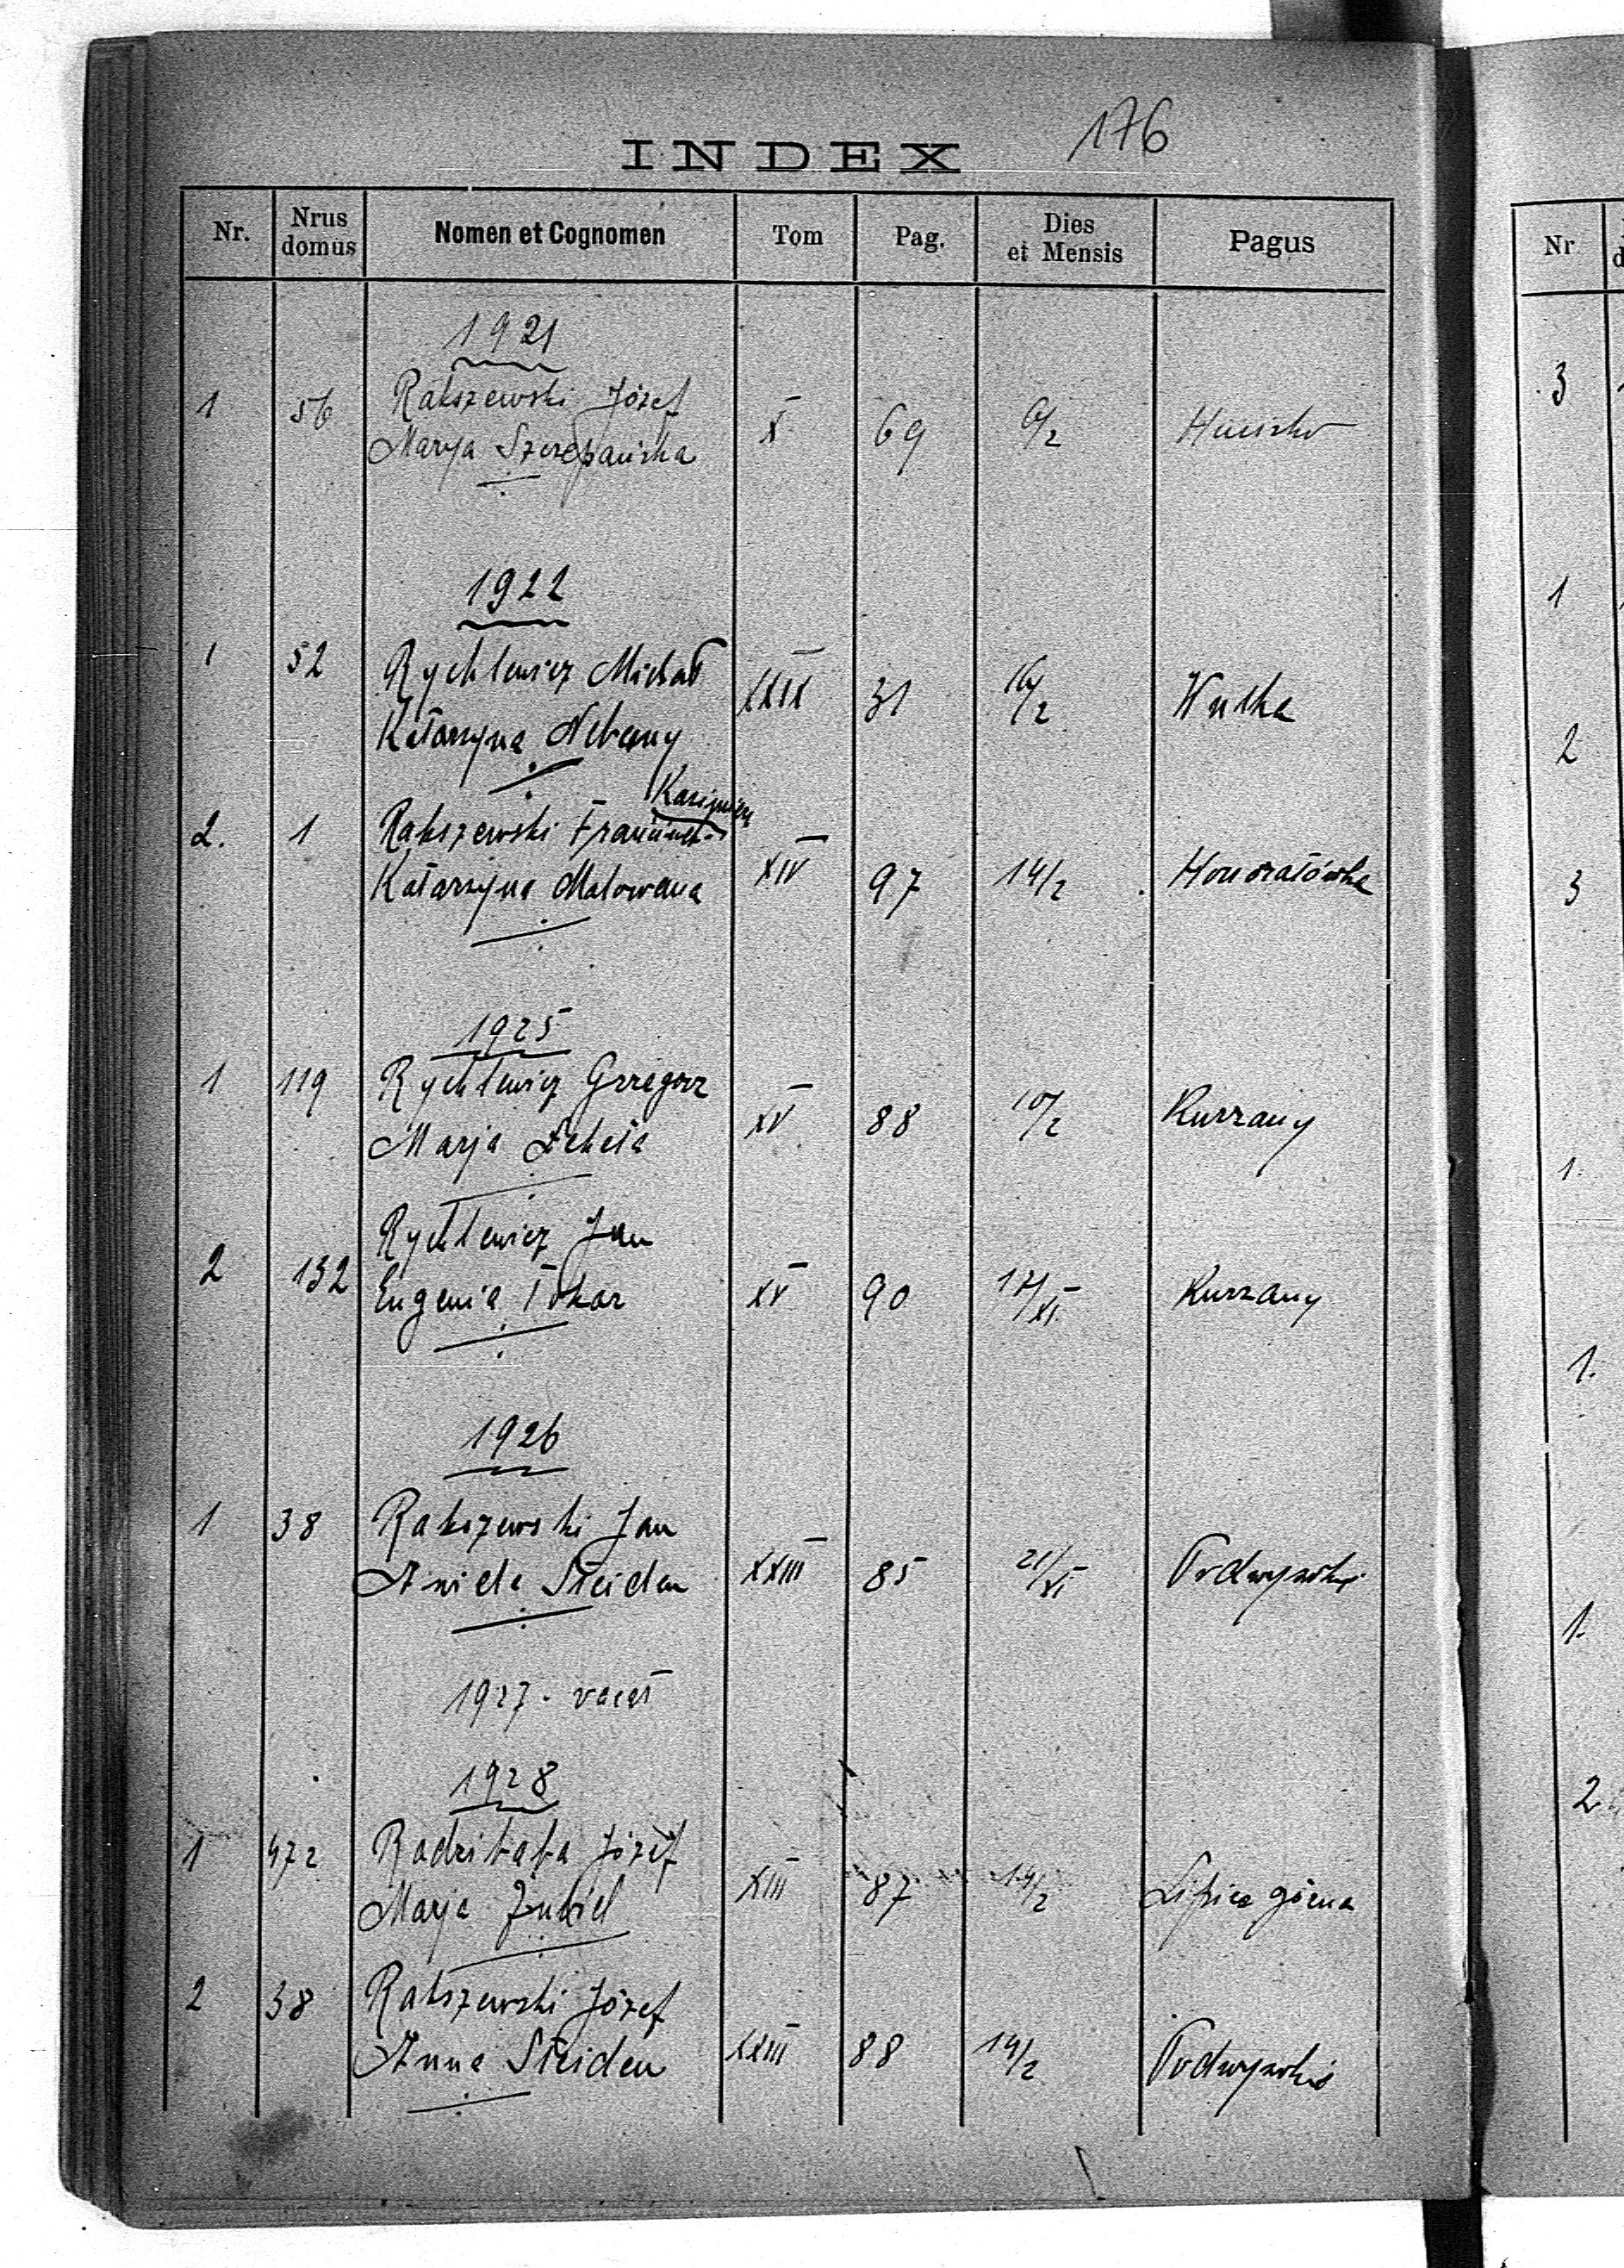 176
INDEX
Nr. Nrus domus Nomen et Cognomen Tom Pag. Dies et Mensis Pagus
1921
1 56 Rakszewski Józef
Marya Szczepańska X 69 6/2 Huisko
1922
1 52 Rychlewicz Michał
Katarzyna XXIX 31 16/2 Wulka
Kazimierz
2. 1 Rakszewski Franciszek
Katarzyna Malowana XIV 97 14/2 Honoratówka
1925
1 119 Rychlewicz Grzegorz
Marja XV 88 10/2 Kurzany
2 132 Rychlewicz Jan
Eugenia Tokar XV 90 17/XI Kurzany
1926
1 38 Rakszewski Jan
Aniela Steiden XXIII 85 21/XI Podwysokie
1927 - vacat
1928
1 472 Józef
Marja Zubiel XIII 87 14/2 Lipica górna
2 38 Rakszewski Józef
Anna Steiden XXIII 88 14/2 Podwysokie
Nr
3
1
2
3
1.
1.
1.
2.